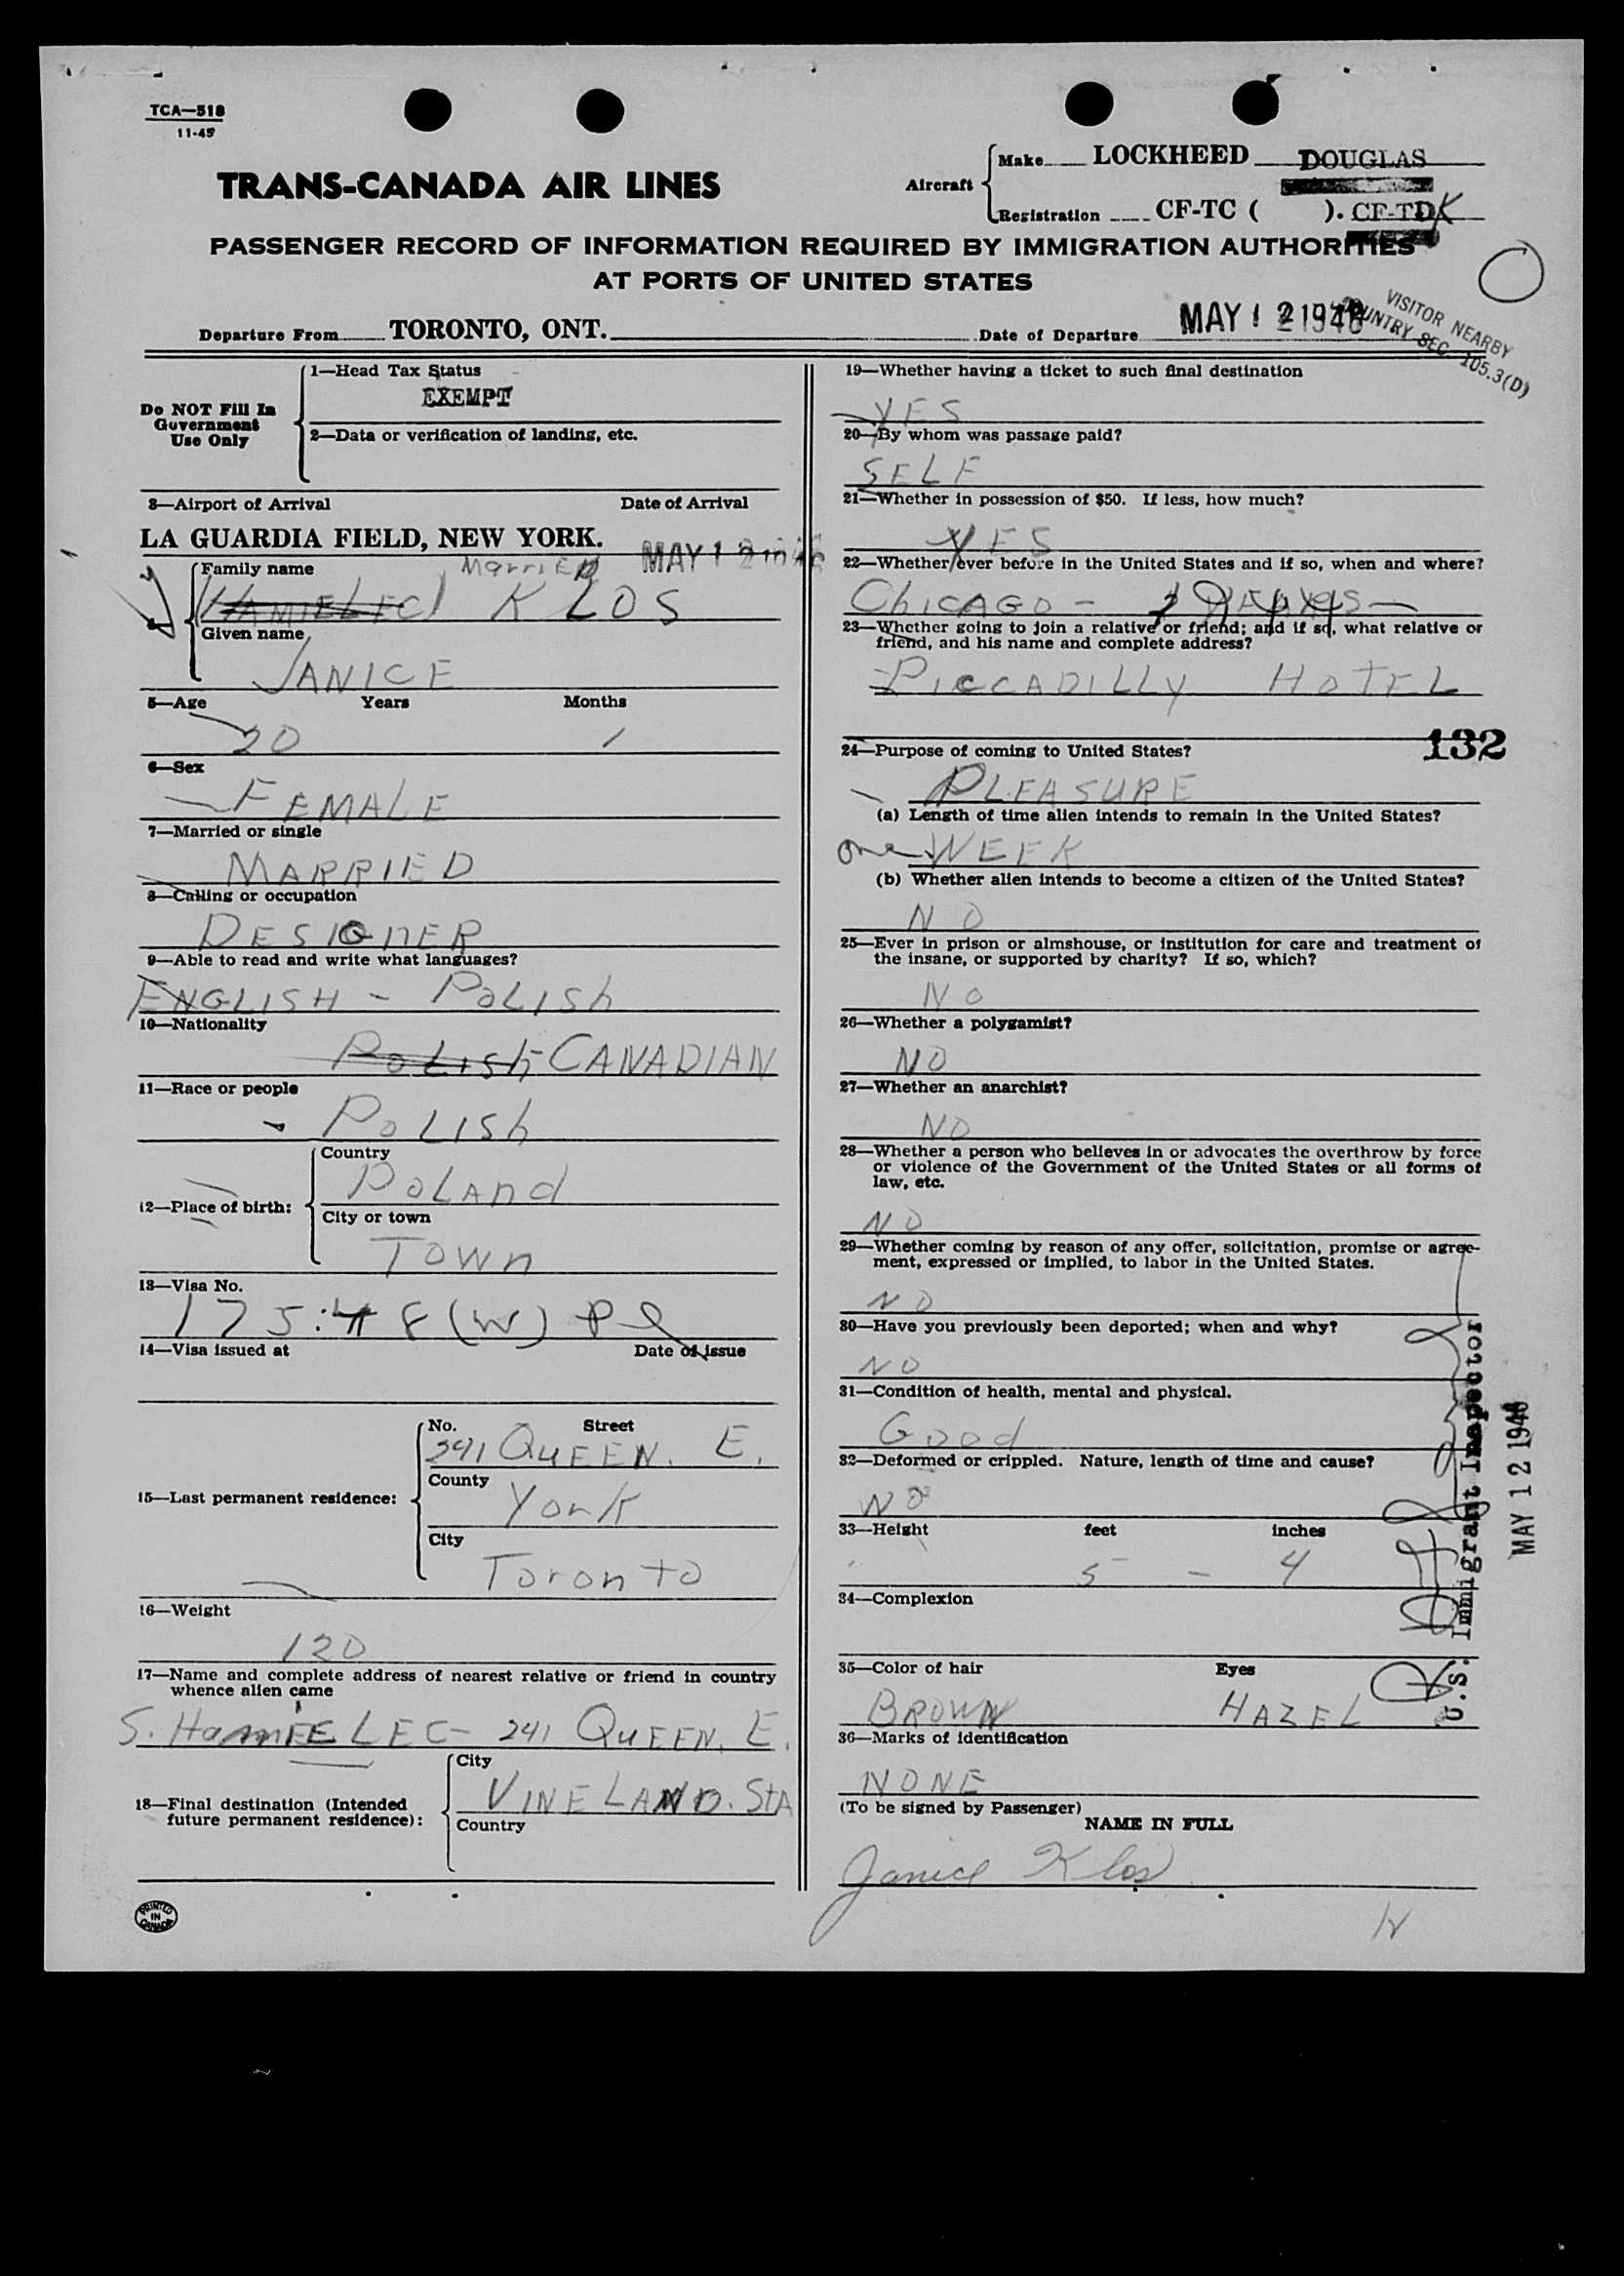 TCA—518
11-45
TRANS-CANADA AIR LINES
Aircraft
Make LOCKHEED DOUGLAS
Registration CF-TC ( ). CF-TDK
PASSENGER RECORD OF INFORMATION REQUIRED BY IMMIGRATION AUTHORITIES
AT PORTS OF UNITED STATES
VISITOR NEARBY
COUNTRY SEC. 105.3(D)
Departure From TORONTO, ONT. Date of Departure MAY 12 1946
Do NOT Fill In
Government
Use Only
1—Head Tax Status
EXEMPT
2—Data or verification of landing, etc.
3—Airport of Arrival Date of Arrival
LA GUARDIA FIELD, NEW YORK. MAY 12 1946
Family name MARRIED
(HAMIELEC) KLOS
Given name
JANICE
5—Age Years Months
20 1
6—Sex
FEMALE
7—Married or single
MARRIED
8—Calling or occupation
DESIGNER
9—Able to read and write what languages?
ENGLISH - POLISH
10—Nationality
POLISH- CANADIAN
11—Race or people
POLISH
12—Place of birth:
Country
POLAND
City or town
TOWN
13—Visa No.
175:48(W)
14—Visa issued at Date of issue
15—Last permanent residence:
No. Street
241 QUEEN. E.
County
YORK
City
Toronto
16—Weight
120
17—Name and complete address of nearest relative or friend in country
whence alien came
S. HAMIELEC - 241 QUEEN. E.
18—Final destination (Intended
future permanent residence):
City
VINELAND. STA
Country
PRINTED
IN
CANADA
19—Whether having a ticket to such final destination
YES
20—By whom was passage paid?
SELF
21—Whether in possession of $50. If less, how much?
YES
22—Whether ever before in the United States and if so, when and where?
CHICAGO - YEARS -
23—Whether going to join a relative or friend; and if so, what relative or
friend, and his name and complete address?
PICCADILLY HOTEL
132
24—Purpose of coming to United States?
PLEASURE
(a) Length of time alien intends to remain in the United States?
one WEEK
(b) Whether alien intends to become a citizen of the United States?
NO
25—Ever in prison or almshouse, or institution for care and treatment of
the insane, or supported by charity? If so, which?
NO
26—Whether a polygamist?
NO
27—Whether an anarchist?
NO
28—Whether a person who believes in or advocates the overthrow by force
or violence of the Government of the United States or all forms of
law, etc.
NO
29—Whether coming by reason of any offer, solicitation, promise or agree-
ment, expressed or implied, to labor in the United States.
NO
30—Have you previously been deported; when and why?
NO
31—Condition of health, mental and physical.
Good
32—Deformed or crippled. Nature, length of time and cause?
NO
33—Height feet inches
5 - 4
34—Complexion
35—Color of hair Eyes
BROWN HAZEL
36—Marks of identification
NONE
(To be signed by Passenger)
NAME IN FULL
Janice Klos
U.S. Immigrant Inspector
MAY 12 1946